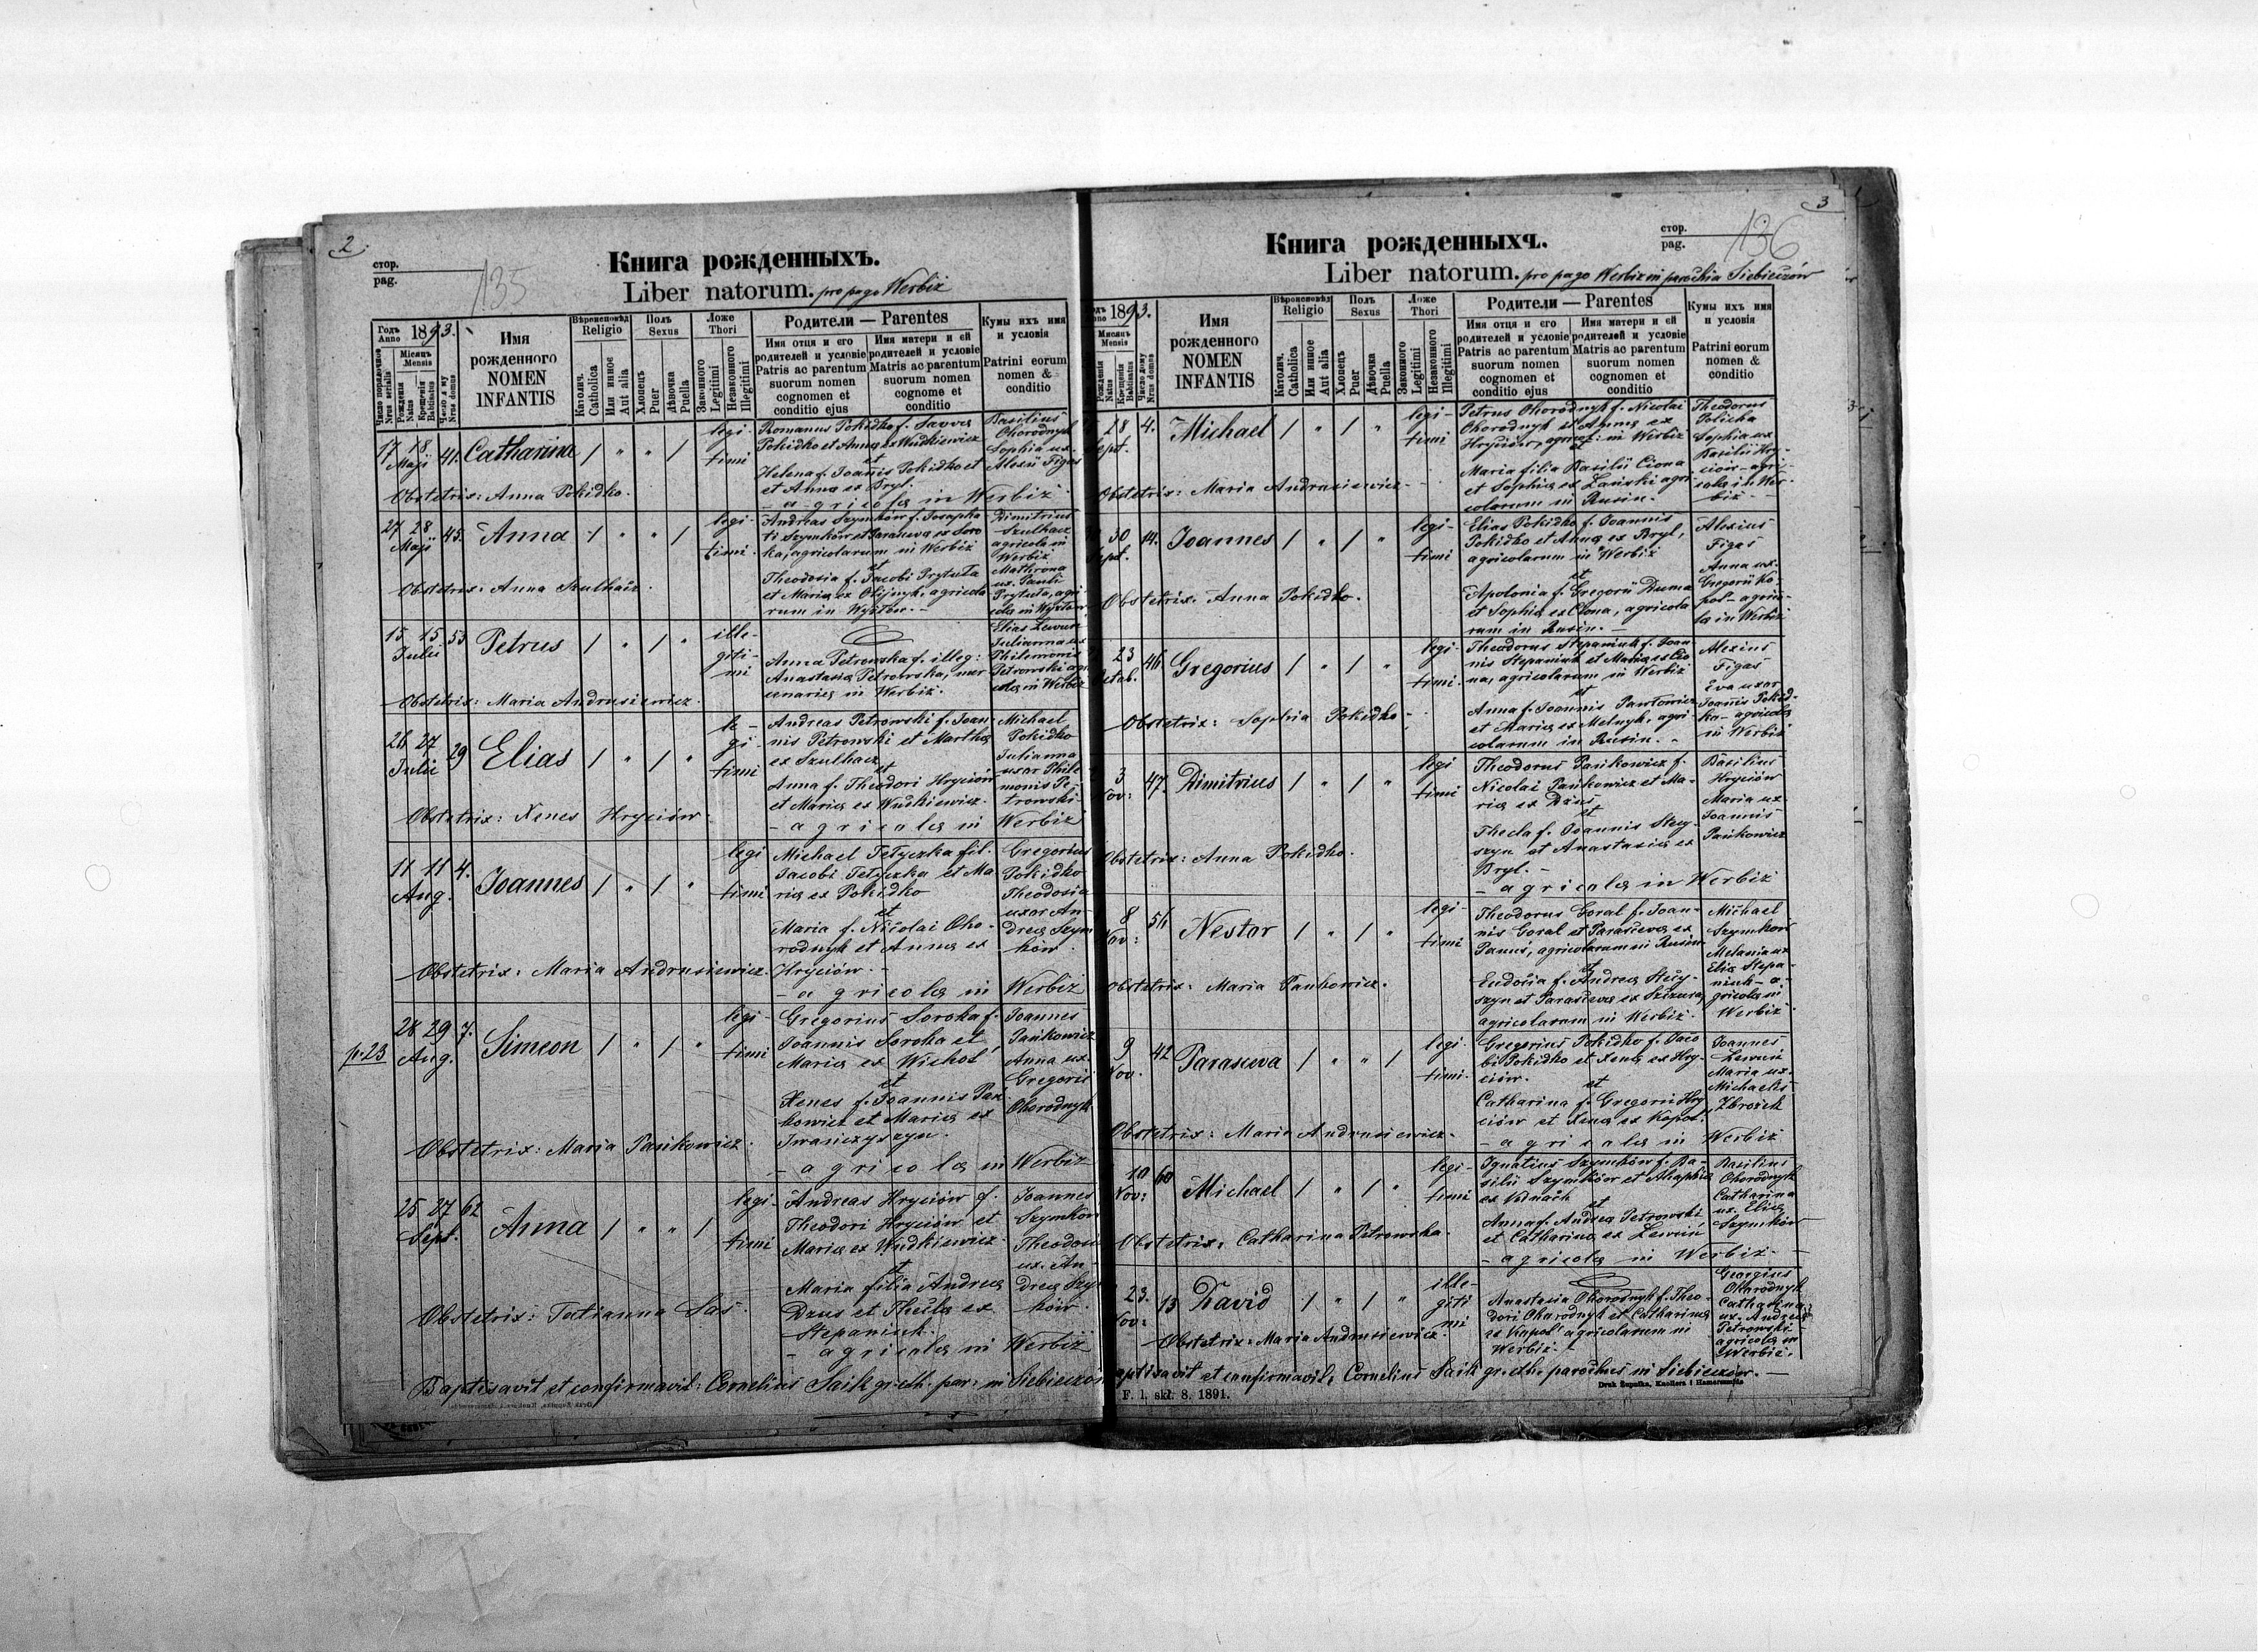 2
стор.
pag.
135
Книга рожденныхъ.
Liber natorum. pro pago Werbiż
Годъ Anno 1893.
Число порядковое Nrus serialis
Мѣсяць Mensis
Рожденія Natus
Крещенія Babtisatus
Число д му Nrus domus
Имя рожденного NOMEN INFANTIS
Вѣроисповѣд Religio
Католич. Catholica
Или инное Aut alia
Полъ Sexus
Хлопець Puer
Дѣвочка Puella
Ложе Thori
Законного Legitimi
Незаконного Illegitimi
Родители — Parentes
Имя отця и его родителей и условіе Patris ac parentum suorum nomen cognomen et conditio ejus
Имя матери и ей родителей и условіе Matris ac parentum suorum nomen cognome et conditio
Кумы ихъ имя и условія
Patrini eorum nomen & conditio
17 18 Maji 41. Catharina / " " / legitimi
Romanus Pokidko f. Savva
Pokidko et Anna ex Wudkiewicz
et
Helena f. Joannis Pokidko et
et Anna ex Bryl.
- agricolae in Werbiż
Basilius
Ohorodnyk
Sophia ux.
Alexii Figas
Obstetrix: Anna Pokidko.
27 28 Maji 45. Anna / " " / legitimi
Andreas Szymków f. Josapha
ti Szymków et Parasceva ex Soro
ka, agricolarum in Werbiż
et
Theodosia f. Jacobi Prytuła
et Maria ex Olijnyk, agricola
rum in Wyżłów. -
Dimitrius
Szulhacz
agricola in
Werbiż
Mathrona
ux. Pauli
Prytuła, agri
cola in Wyżłów
Obstetrix: Anna Szulhacz.
15 15 Julii 53 Petrus / " / " illegitimi
Anna Petrowska f. illeg:
Anastasia Petrowska, mer
cenaria in Werbiż.
Elias Lewun
Julianna ux
Philemonis
Petrowski agri
cola in Werbiż
Obstetrix: Maria Andrusiewicz.
26 27 Julii 29 Elias / " / " legitimi
Andreas Petrowski f. Joan
nis Petrowski et Martha
ex Szulhacz
et
Anna f. Theodori Hryciów
et Maria ex Wudkiewicz.
- agricolae in Werbiż
Michael
Pokidko
Julianna
uxor Phile
monis Pe-
trowski
Obstetrix: Xenes Hryciów.
11 11 Aug. 4. Joannes / " / " legitimi
Michael Tetyczka fil.
Jacobi Tetyczka et Ma
ria ex Pokidko
et
Maria f. Nicolai Oho-
rodnyk et Anna ex
Hryciów. -
- agricolae in Werbiż
Gregorius
Pokidko
Theodosia
uxor An-
drea Szym
ków.
Obstetrix: Maria Andrusiewicz.
p. 23
28 29 Aug. 7. Simeon / " / " legitimi
Gregorius Soroka f.
Joannis Soroka et
Maria ex Wichot
et
Xenes f. Joannis Pań
kowicz et Maria ex
Iwańczyszyn.
- agricolae in Werbiż
Joannes
Pańkowicz
Anna ux.
Gregorii
Ohorodnyk
Obstetrix: Maria Pańkowicz.
25 27 Sept. 62 Anna / " " / legitimi
Andreas Hryciów f.
Theodori Hryciów et
Maria ex Wudkiewicz.
et
Maria filia Andrea
Dzus et Thecla ex
Stepanick.
- agricolae in Werbiż
Joannes
Szymków
Theodosi
ux. An-
drea Szy
ków.
Obstetrix: Tatianna Sas.
Baptisavit et confirmavit: Cornelius Saik gr. cth. par: in Siebieczów
3
стор.
pag.
136
Книга рожденныхъ.
Liber natorum. pro pago Werbiż in parochia Siebieczów
1893.
Мѣсяць Mensis
Рожденія Natus
Число дому Nrus domus
Имя рожденного NOMEN INFANTIS
Вѣроисповѣд Religio
Католич. Catholica
Или инное Aut alia
Полъ Sexus
Хлопець Puer
Дѣвочка Puella
Ложе Thori
Законного Legitimi
Незаконного Illegitimi
Родители — Parentes
Имя отця и его родителей и условіе Patris ac parentum suorum nomen cognomen et conditio ejus
Имя матери и ей родителей и условіе Matris ac parentum suorum nomen cognomen et conditio
Кумы ихъ имя и условія
Patrini eorum nomen & conditio
28 Sept. 4. Michael / " / " legitimi
Petrus Ohorodnyk f. Nicolai
Ohorodnyk et Anna ex
Hryciów, agricol: in Werbiż
et
Maria filia Basilii Ciona
et Sophia ex Łański agri
colarum in Rusin.
Theodorus
Policha
Sophia ux
Basilii Hry-
ciów - agri-
cola in Wer-
biż -
Obstetrix: Maria Andrusiewicz -
30 Sept. 14. Joannes / " / " legitimi
Elias Pokidko f. Joannis
Pokidko et Anna ex Bryl,
agricolarum in Werbiż
et
Apolonia f. Gregorii Duma
et Sophia ex Ciona, agricola
rum in Rusin. -
Alexius
Figas
Anna ux.
Gregorii Ko-
pol - agrico-
la in Werbiż
Obstetrix: Anna Pokidko.
23 Octob. 46 Gregorius / " / " legitimi.
Theodorus Stepaniuk f. Joan
nis Stepaniuk et Maria ex Cio
na, agricolarum in Werbiż
et
Anna f. Joannis Pawłowicz
et Maria ex Melnyk, agri
colarum in Rusin. -
Alexius
Figas
Eva uxor
Joannis Pokid-
ko - agricola
in Werbiż
Obstetrix: Sophia Pokidko -
3 Nov: 47. Dimitrius / " / " legitimi
Theodorus Pańkowicz f.
Nicolai Pańkowicz et Ma-
ria ex Dzus
et
Thecla f. Joannis Stecy-
szyn et Anastasia ex
Bryl. -
- agricolae in Werbiż
Basilius
Hryciów
Maria ux
Joannis
Pańkowicz
Obstetrix: Anna Pokidko.
8 Nov: 56 Nestor / " / " legitimi
Theodorus Goral f. Joan-
nis Goral et Parasceva ex
Panus, agricolarum in Rusin
et
Eudocia f. Andrea Stecy-
szyn et Parasceva ex
agricolarum in Werbiż.
Michael
Szymków
Melania ux
Elia Stepa-
niuk - a-
gricola in
Werbiż
Obstetrix: Maria Pankowicz.
9 Nov. 42 Parasceva / " " / legitimi.
Gregorius Pokidko f. Jaco
bi Pokidko et Xena ex Hry-
ciów.
et
Catharina f. Gregorii Hry
ciów et Xena ex Kopol
- agricolae in Werbiż
Joannes
Lewun
Maria ux.
Michaelis
Zbrożek
Obstetrix: Maria Andrusiewicz -
10 Nov: 60 Michael / " / " legitimi
Ignatius Szymków f. Ba-
silii Szymków et Ahaphia
ex
et
Anna f. Andrea Petrowski
et Catharina ex Lewun
- agricolae in Werbiż. -
Basilius
Ohorodnyk
Catharina
ux. Elia
Szymków
Obstetrix: Catharina Petrowska.
23. Nov: 13 David / " / " illegitimi
Anastasia Ohorodnyk f. Theo-
dori Ohorodnyk et Catharina
ex Kopol agricolarum in
Werbiż. -
Georgius
Ohorodnyk
Catharina
ux. Andrea
Petrowski
agricola in
Werbiż.
Obstetrix: Maria Andrusiewicz.
aptisavit et confirmavit, Cornelius Saik gr. cth. parochus in Siebieczów. -
F. 1. skł. 8. 1891.
Druk Żupnika, Knollera i Hamerszmita